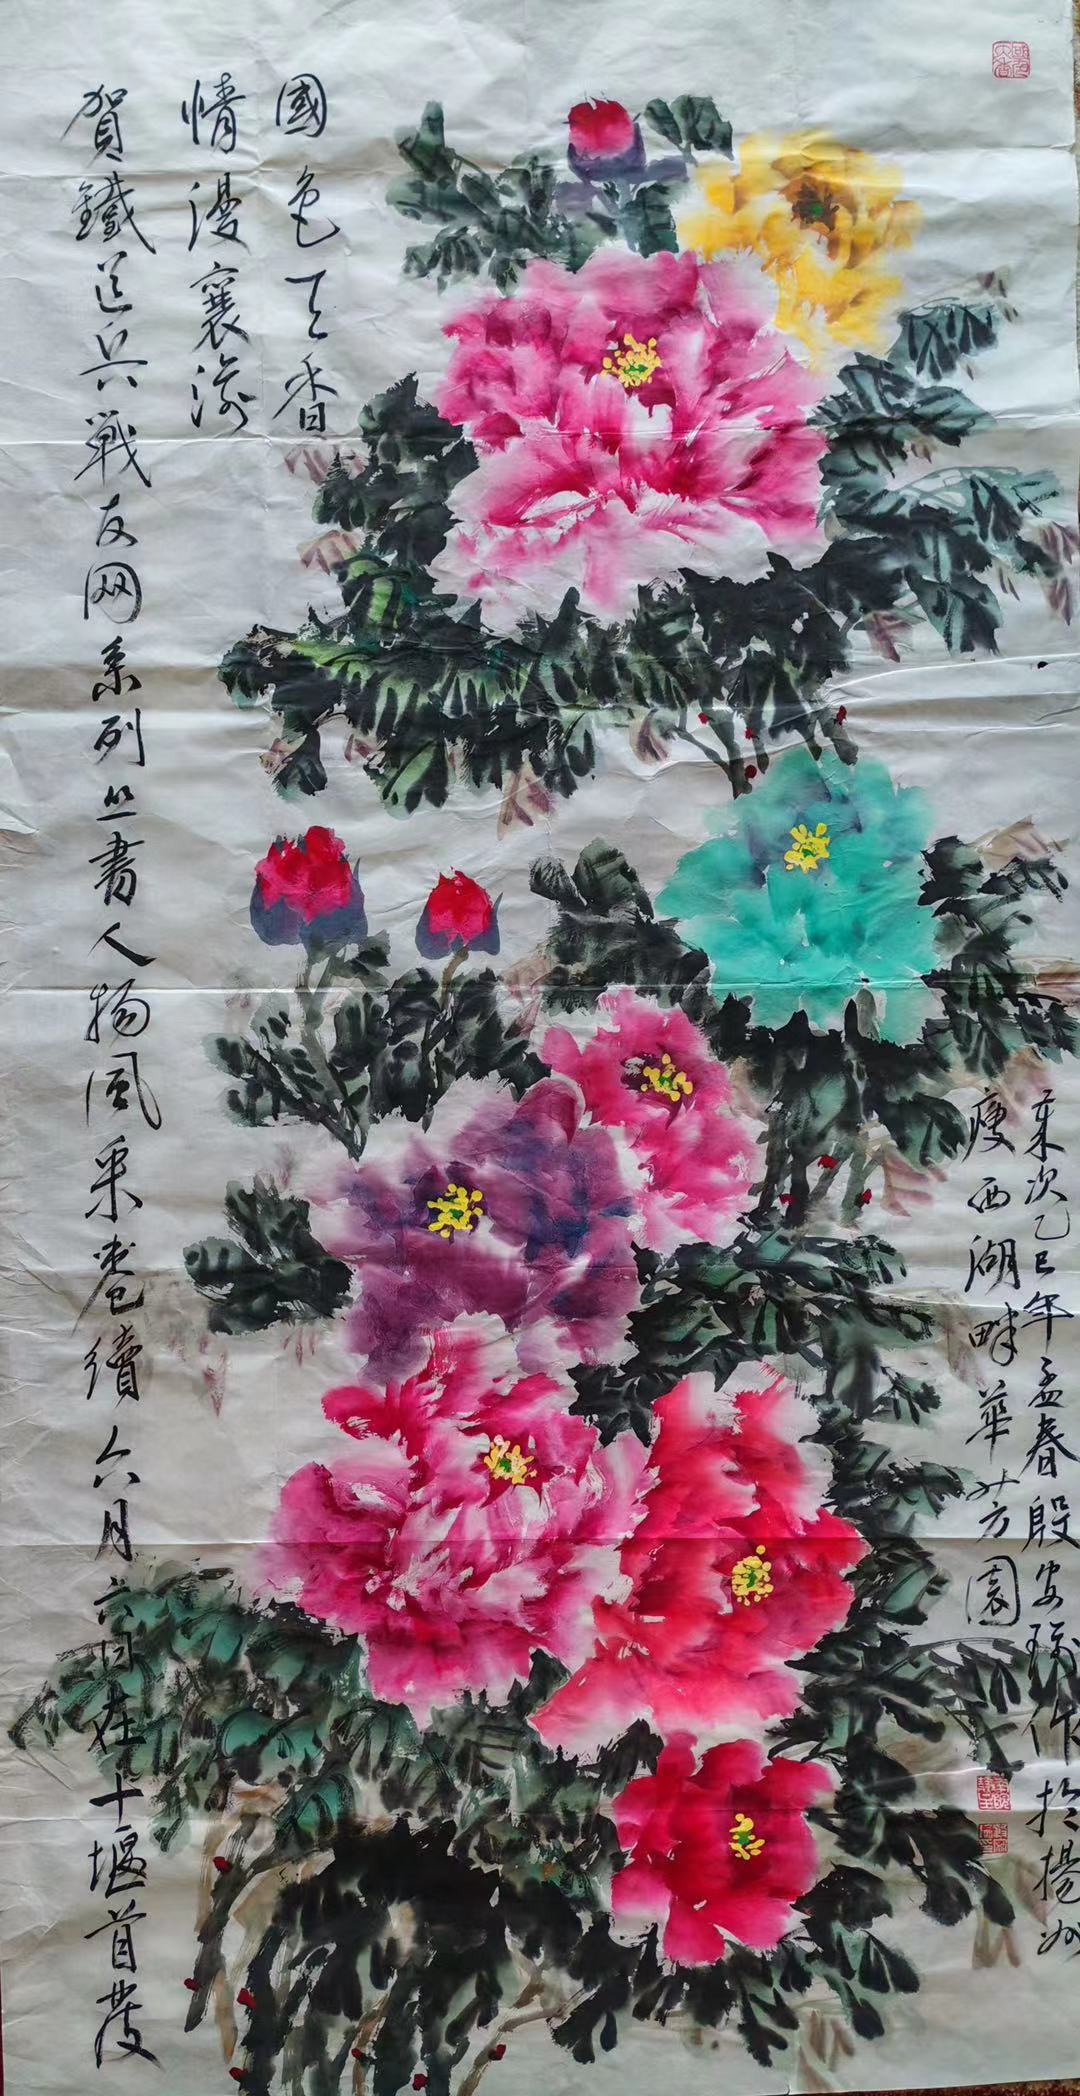 國色天香
情漫襄渝
賀鐵道兵戰友网系列丛書人物風采卷續六月六日在十堰首發
歲次乙巳年孟春殷安作於揚州
瘦西湖畔華芳園